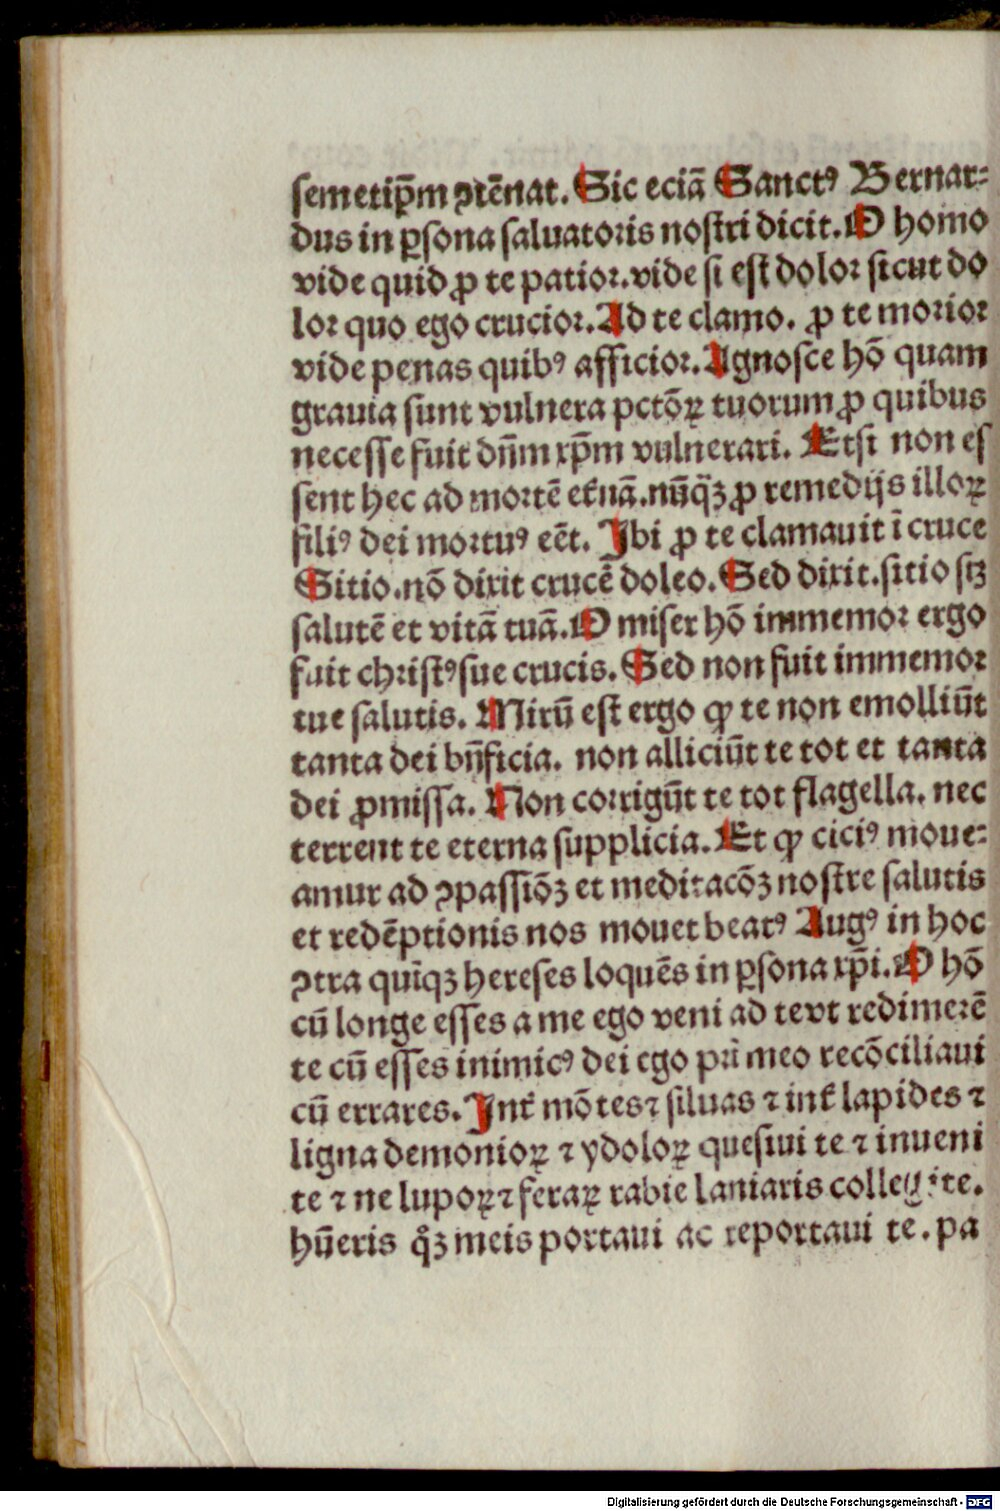 semetip̄m ꝯtēnat. Sic eciā Sanctꝰ Bernar⸗
dus in ꝑsona saluatoris nostri dicit. O homo
vide quid ꝓ te patior. vide si est dolor sicut do
lor quo ego crucior. Ad te clamo. ꝓ te morior
vide penas quibꝰ afficior. Agnosce hō quam
grauia sunt vulnera pctōꝝ tuorum ꝓ quibus
necesse fuit dn̄m xp̄m vulnerari. Etsi non es
sent hec ad mortē et̓nā. nūq̄ꝫ ꝓ remedijs illoꝝ
filiꝰ dei mortuꝰ eēt. Ibi ꝓ te clamauit ī cruce
Sitio. nō dixit crucē doleo. Sed dixit. sitio sꝫ
salutē et vitā tuā. O miser hō immemor ergo
fuit christꝰ sue crucis. Sed non fuit immemor
tue salutis. Mirū est ergo ꝙ te non emolliūt
tanta dei bn̄ficia. non alliciūt te tot et tanta
dei ꝓmissa. Non corrigūt te tot flagella. nec
terrent te eterna supplicia. Et ꝙ ciciꝰ moue⸗
amur ad ꝯpassiōꝫ et meditacōꝫ nostre salutis
et redēptionis nos mouet beatꝰ Augꝰ in hoc
ꝯtra quīqꝫ hereses loquēs in ꝑsona xp̄i. O hō
cū longe esses a me ego veni ad te vt redimerē
te cū esses inimicꝰ dei ego pr̄i meo recōciliaui
cū errares. Int̓ mōtes ⁊ siluas ⁊ int̓ lapides ⁊
ligna demonioꝝ ⁊ ydoloꝝ quesiui te ⁊ inueni
te ⁊ ne lupoꝝ ⁊ feraꝝ rabie laniaris collegi te.
hūeris qͦꝫ meis portaui ac reportaui te. pa
Digitalisierung gefördert durch die Deutsche Forschungsgemeinschaft - DFG